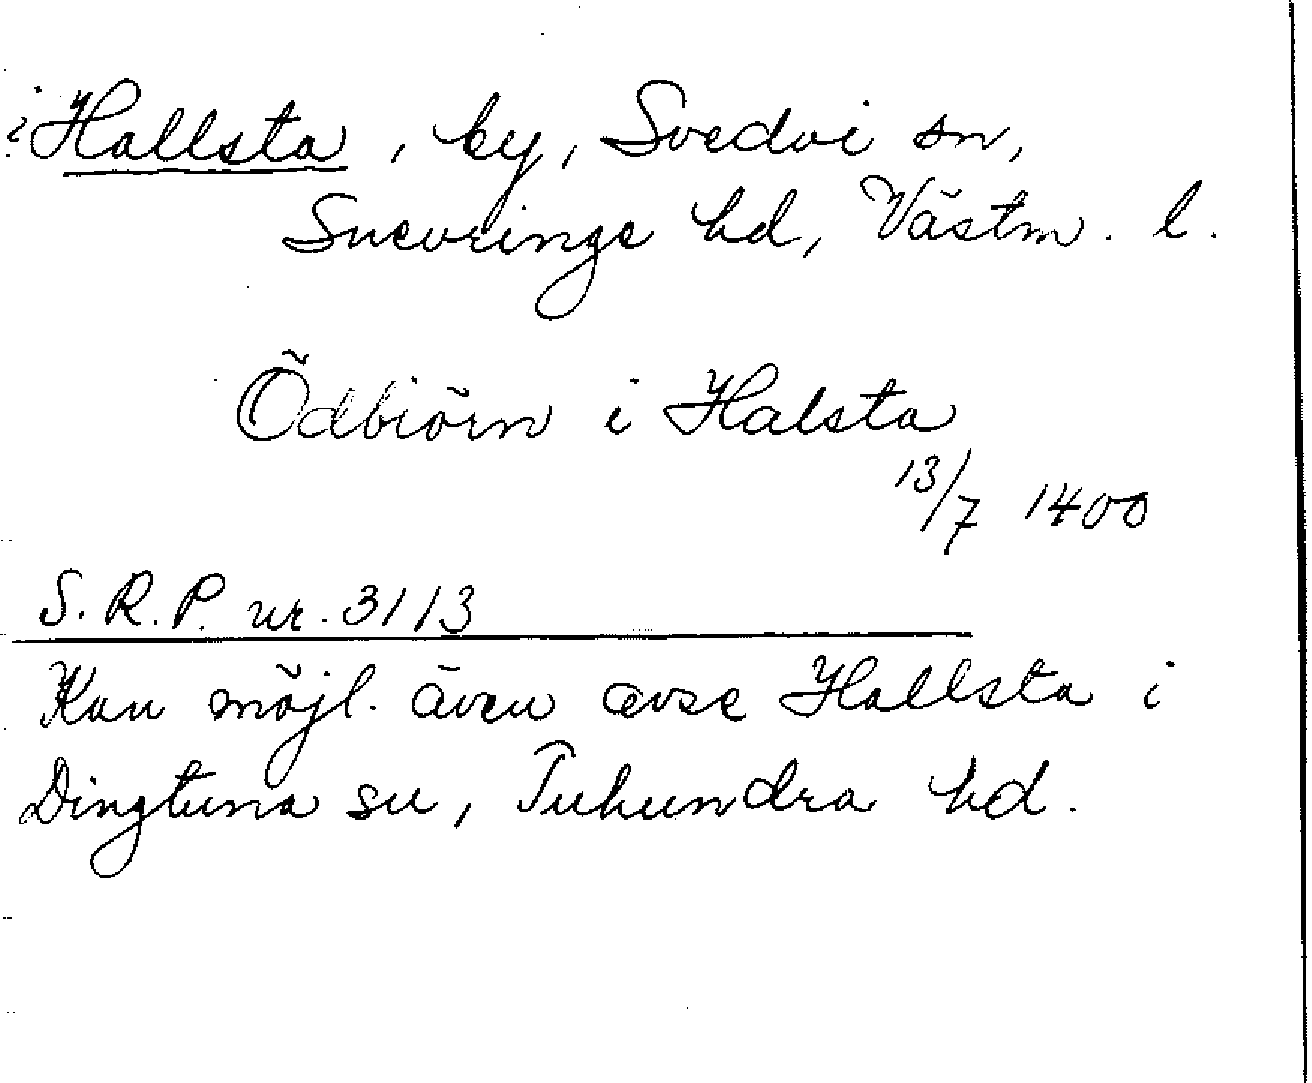 Hallsta, by, Svedvi sn,
Snevringe hd, Västm. l.
Ödbiörn i Halsta
13/7 1400
S.R.P. nr. 3113
Kan möjl. även avse Hallsta i
Dingtuna sn, Tuhundra hd.